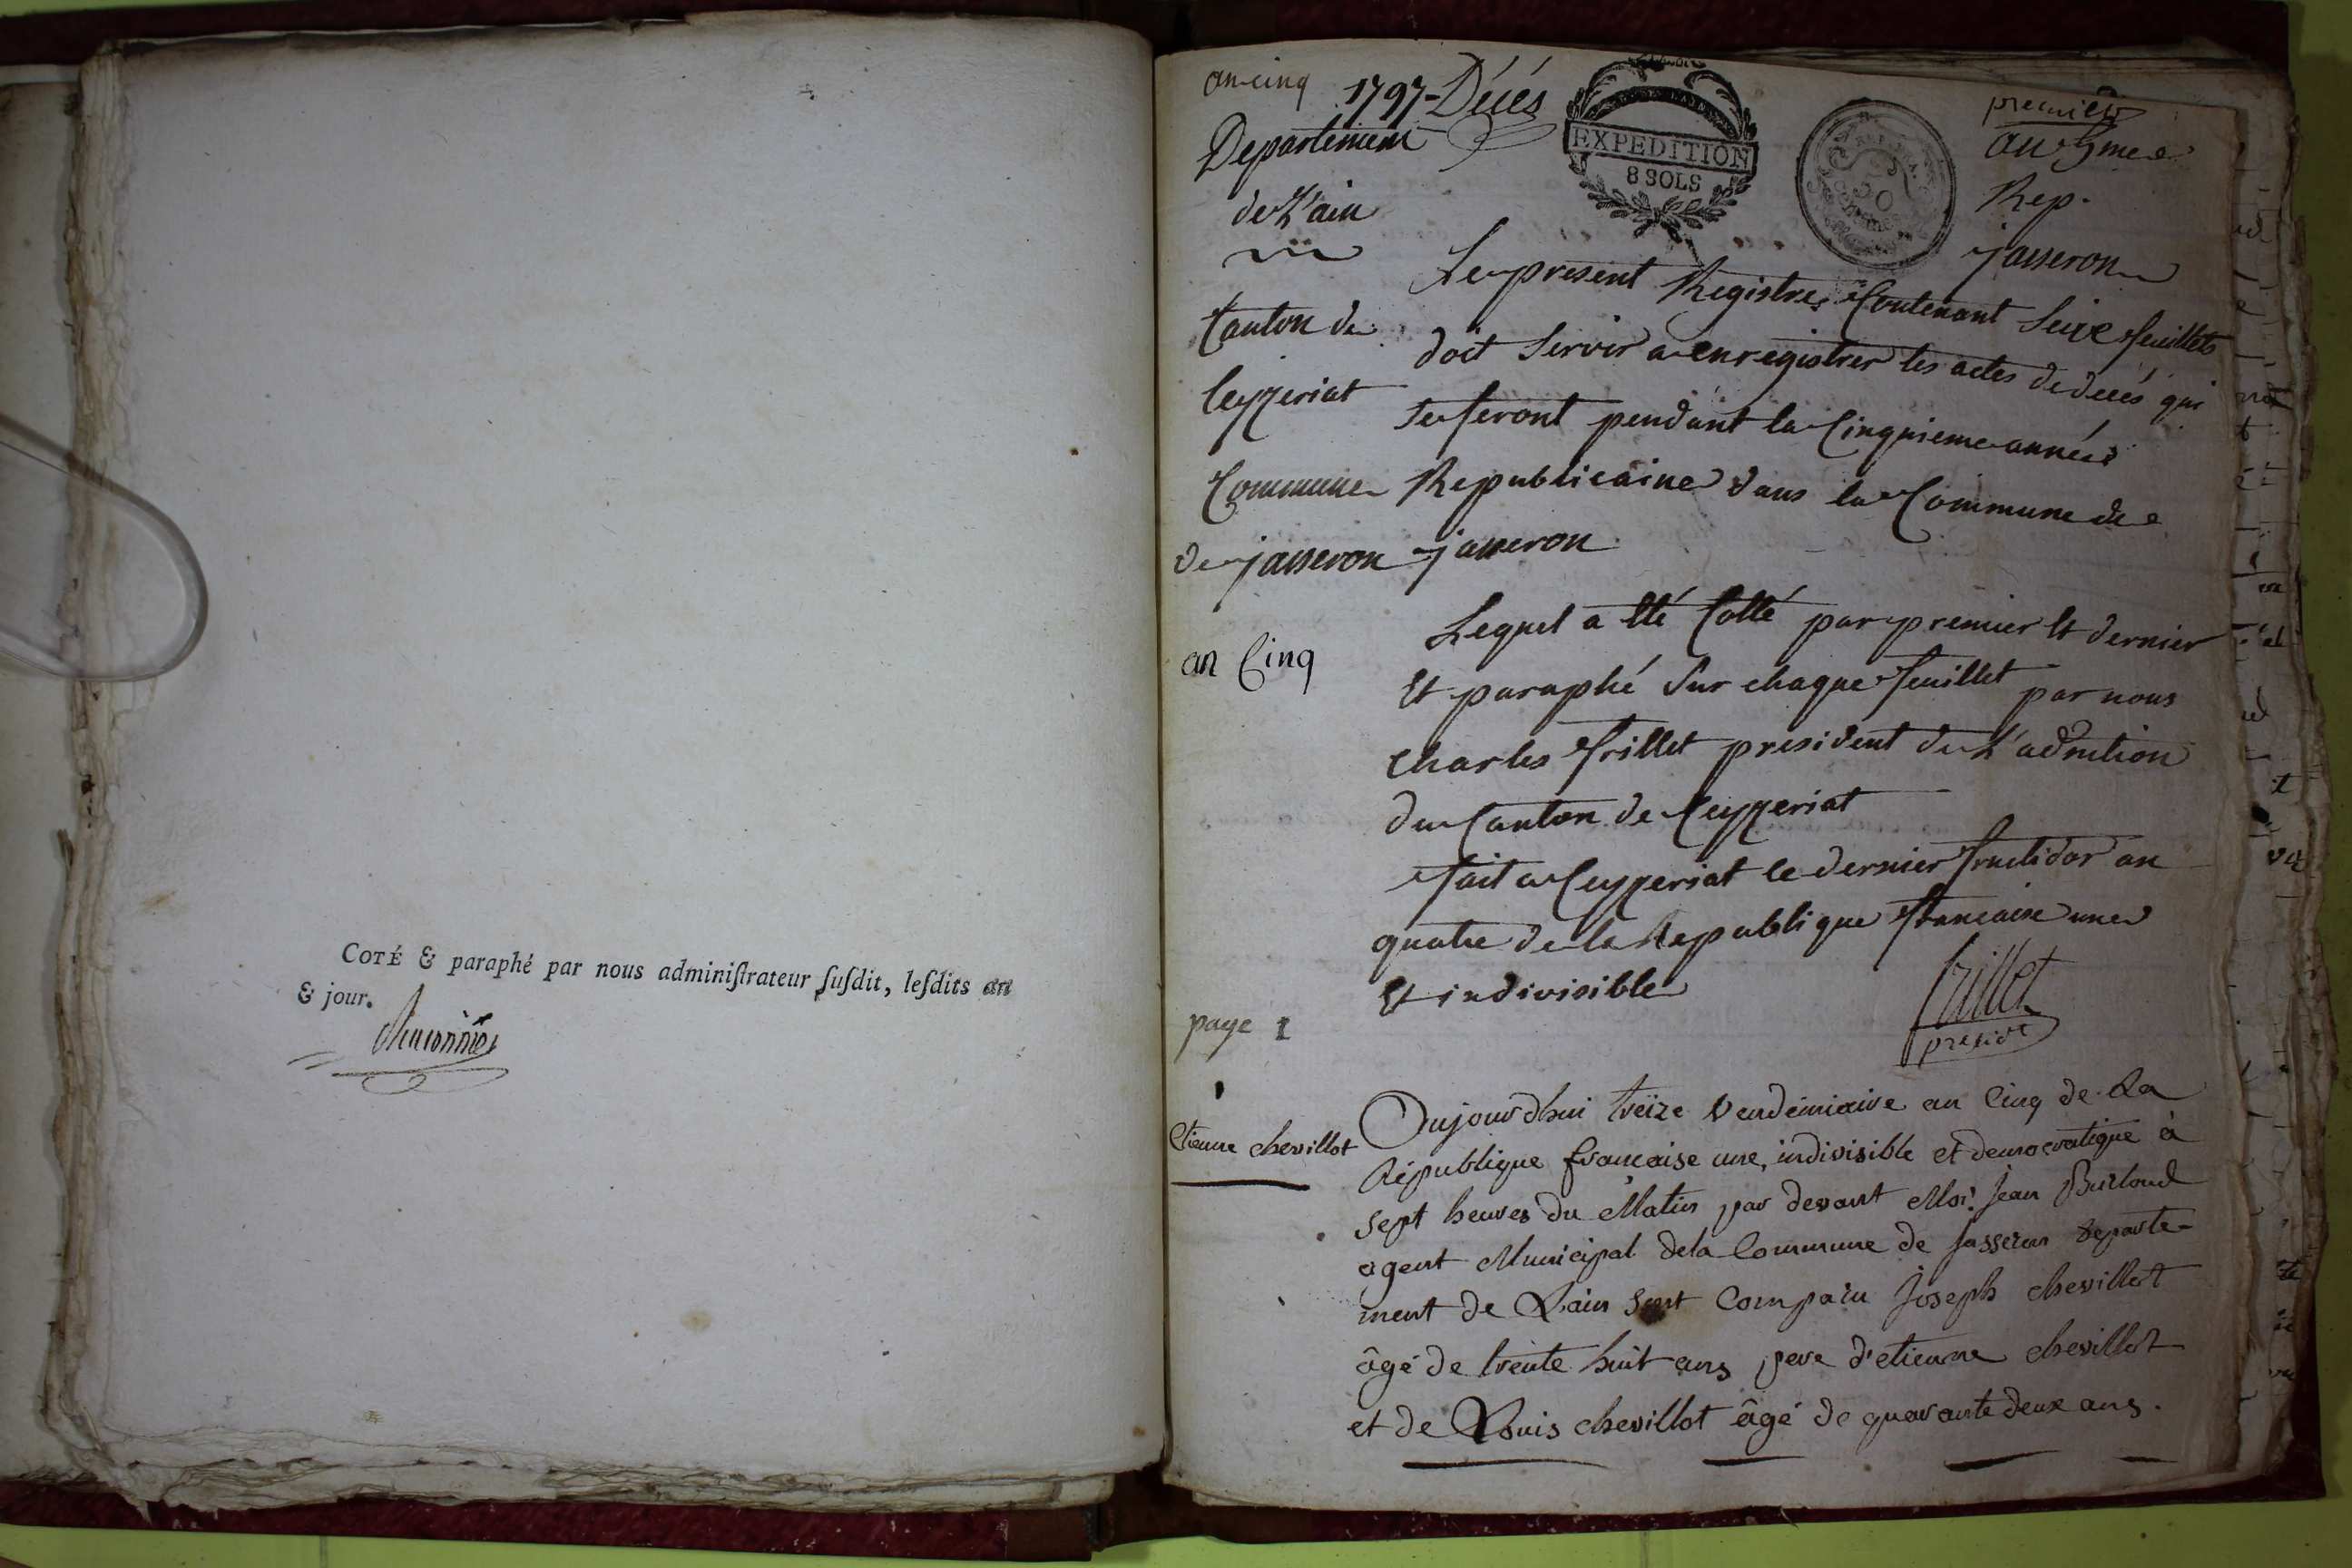 COTÉ & paraphé par nous adminiſtrateur ſuſdit, leſdits an
& jour.
an cinq 1797 - Décés
Departement
de L'ain
Canton de
Ceyzeriat
Commune
de jasseron
an Cinq
page 1
Etienne chevillot
EXPEDITION
8 SOLS
50
premier
an 5me
Rep.
jasseron
Le present Registre Contenant Seize feuillets
doit Servir a enregistrer les actes de decés qui
Se feront pendant la Cinquieme année
Republicaine dans la Commune de
jasseron
Lequel a Eté Cotté par premier Et dernier
Et paraphé Sur chaque feuillet par nous
Charles frillet president de L'admtion
du Canton de Ceyzeriat
fait a Ceyzeriat le dernier fructidor an
quatre de la Republique francaise une
Et indivisible
frillet
presidt
Aujourdhui treize Vendémiaire an Cinq de La
République francaise une, indivisible et democratique à
sept heures du Matin par devant Moi Jean Burloud
agent Municipal dela Commune de Jasseron departe-
ment de Lain sont Comparu Joseph chevillot
âgé de trente huit ans pere d'etienne chevillot
et de Louis chevillot âgé de quarante deux ans.